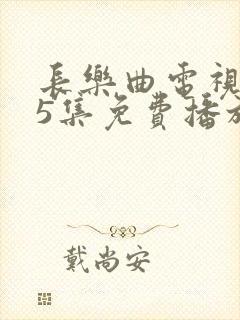 長樂曲電視
5集免費播放
戴尚安